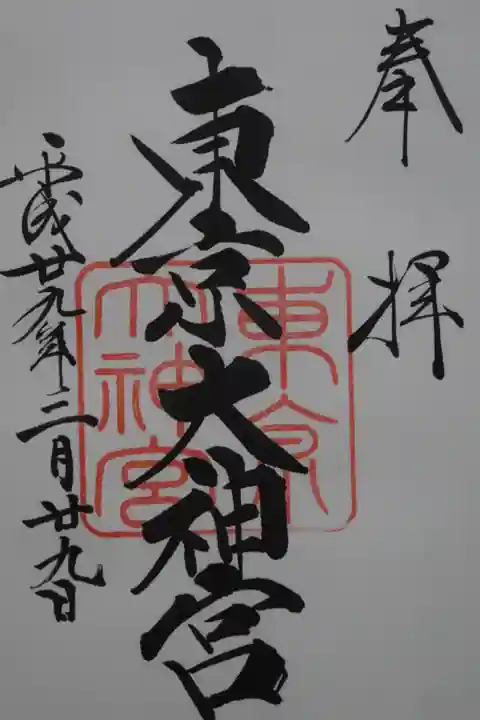 奉拝
東京大神宮
平成廿九年三月廿九日
東京大神宮